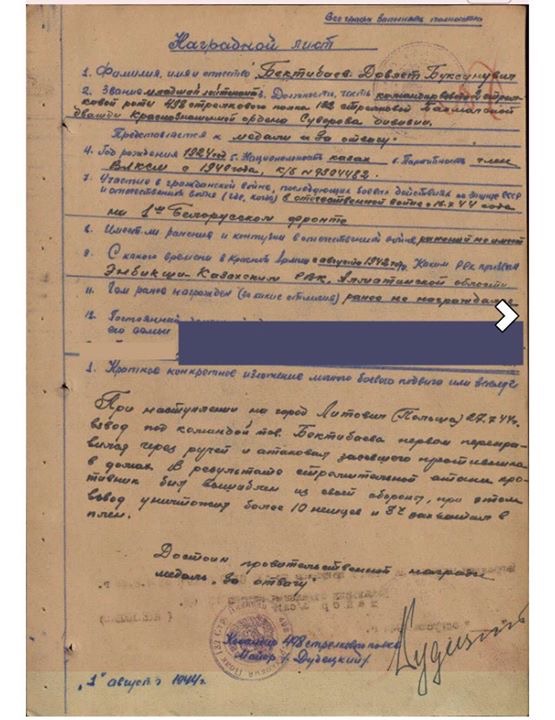 Наградной лист
1. Фамилия, имя и отчество Бектибаев Довлет Буксумувич
2. Звание младший лейтенант. Должность, часть командир взвода 2 стрел-
ковой роты 498 стрелкового полка 132 стрелковой Бахмачской
дважды Краснознаменной ордена Суворова дивизии.
Представляется к медали „За отвагу"
4. Год рождения 1924 год 5. Национальность казах 6. Партийность член
ВЛКСМ с 1940 года, к/б №
7. Участие в гражданской войне, последующих боевых действиях по защите СССР
и отечественной войне (где, когда) в отечественной войне с 18.7.44 года
на 1ом Белорусском фронте
8. Имеет ли ранения и контузии в отечественной войне ранений не имеет
9. С какого времени в Красной Армии с августа 1942 г. Каким РВК призван
Энбикши-Казахским РВК, Алматинской области
11. Чем ранее награжден (за какие отличия) ранее не награждался
12. Постоянный
его семьи
1. Краткое конкретное изложение личного боевого подвига или заслуг
При наступлении на город Литович (Польша) 27.7.44г.
взвод под командой тов. Бектибаева первым перепра-
вился через ручей и атаковал засевшего противника
в домах. В результате стремительной атаки про-
тивник был вышиблен из своей обороны, при этом
взвод уничтожил более 10 немцев и 3х захватил в
плен.
Достоин правительственной награды
медаль „За отвагу"
Командир 498 стрелкового полка
Майор / Дубецкий /
„1" август 1944г.